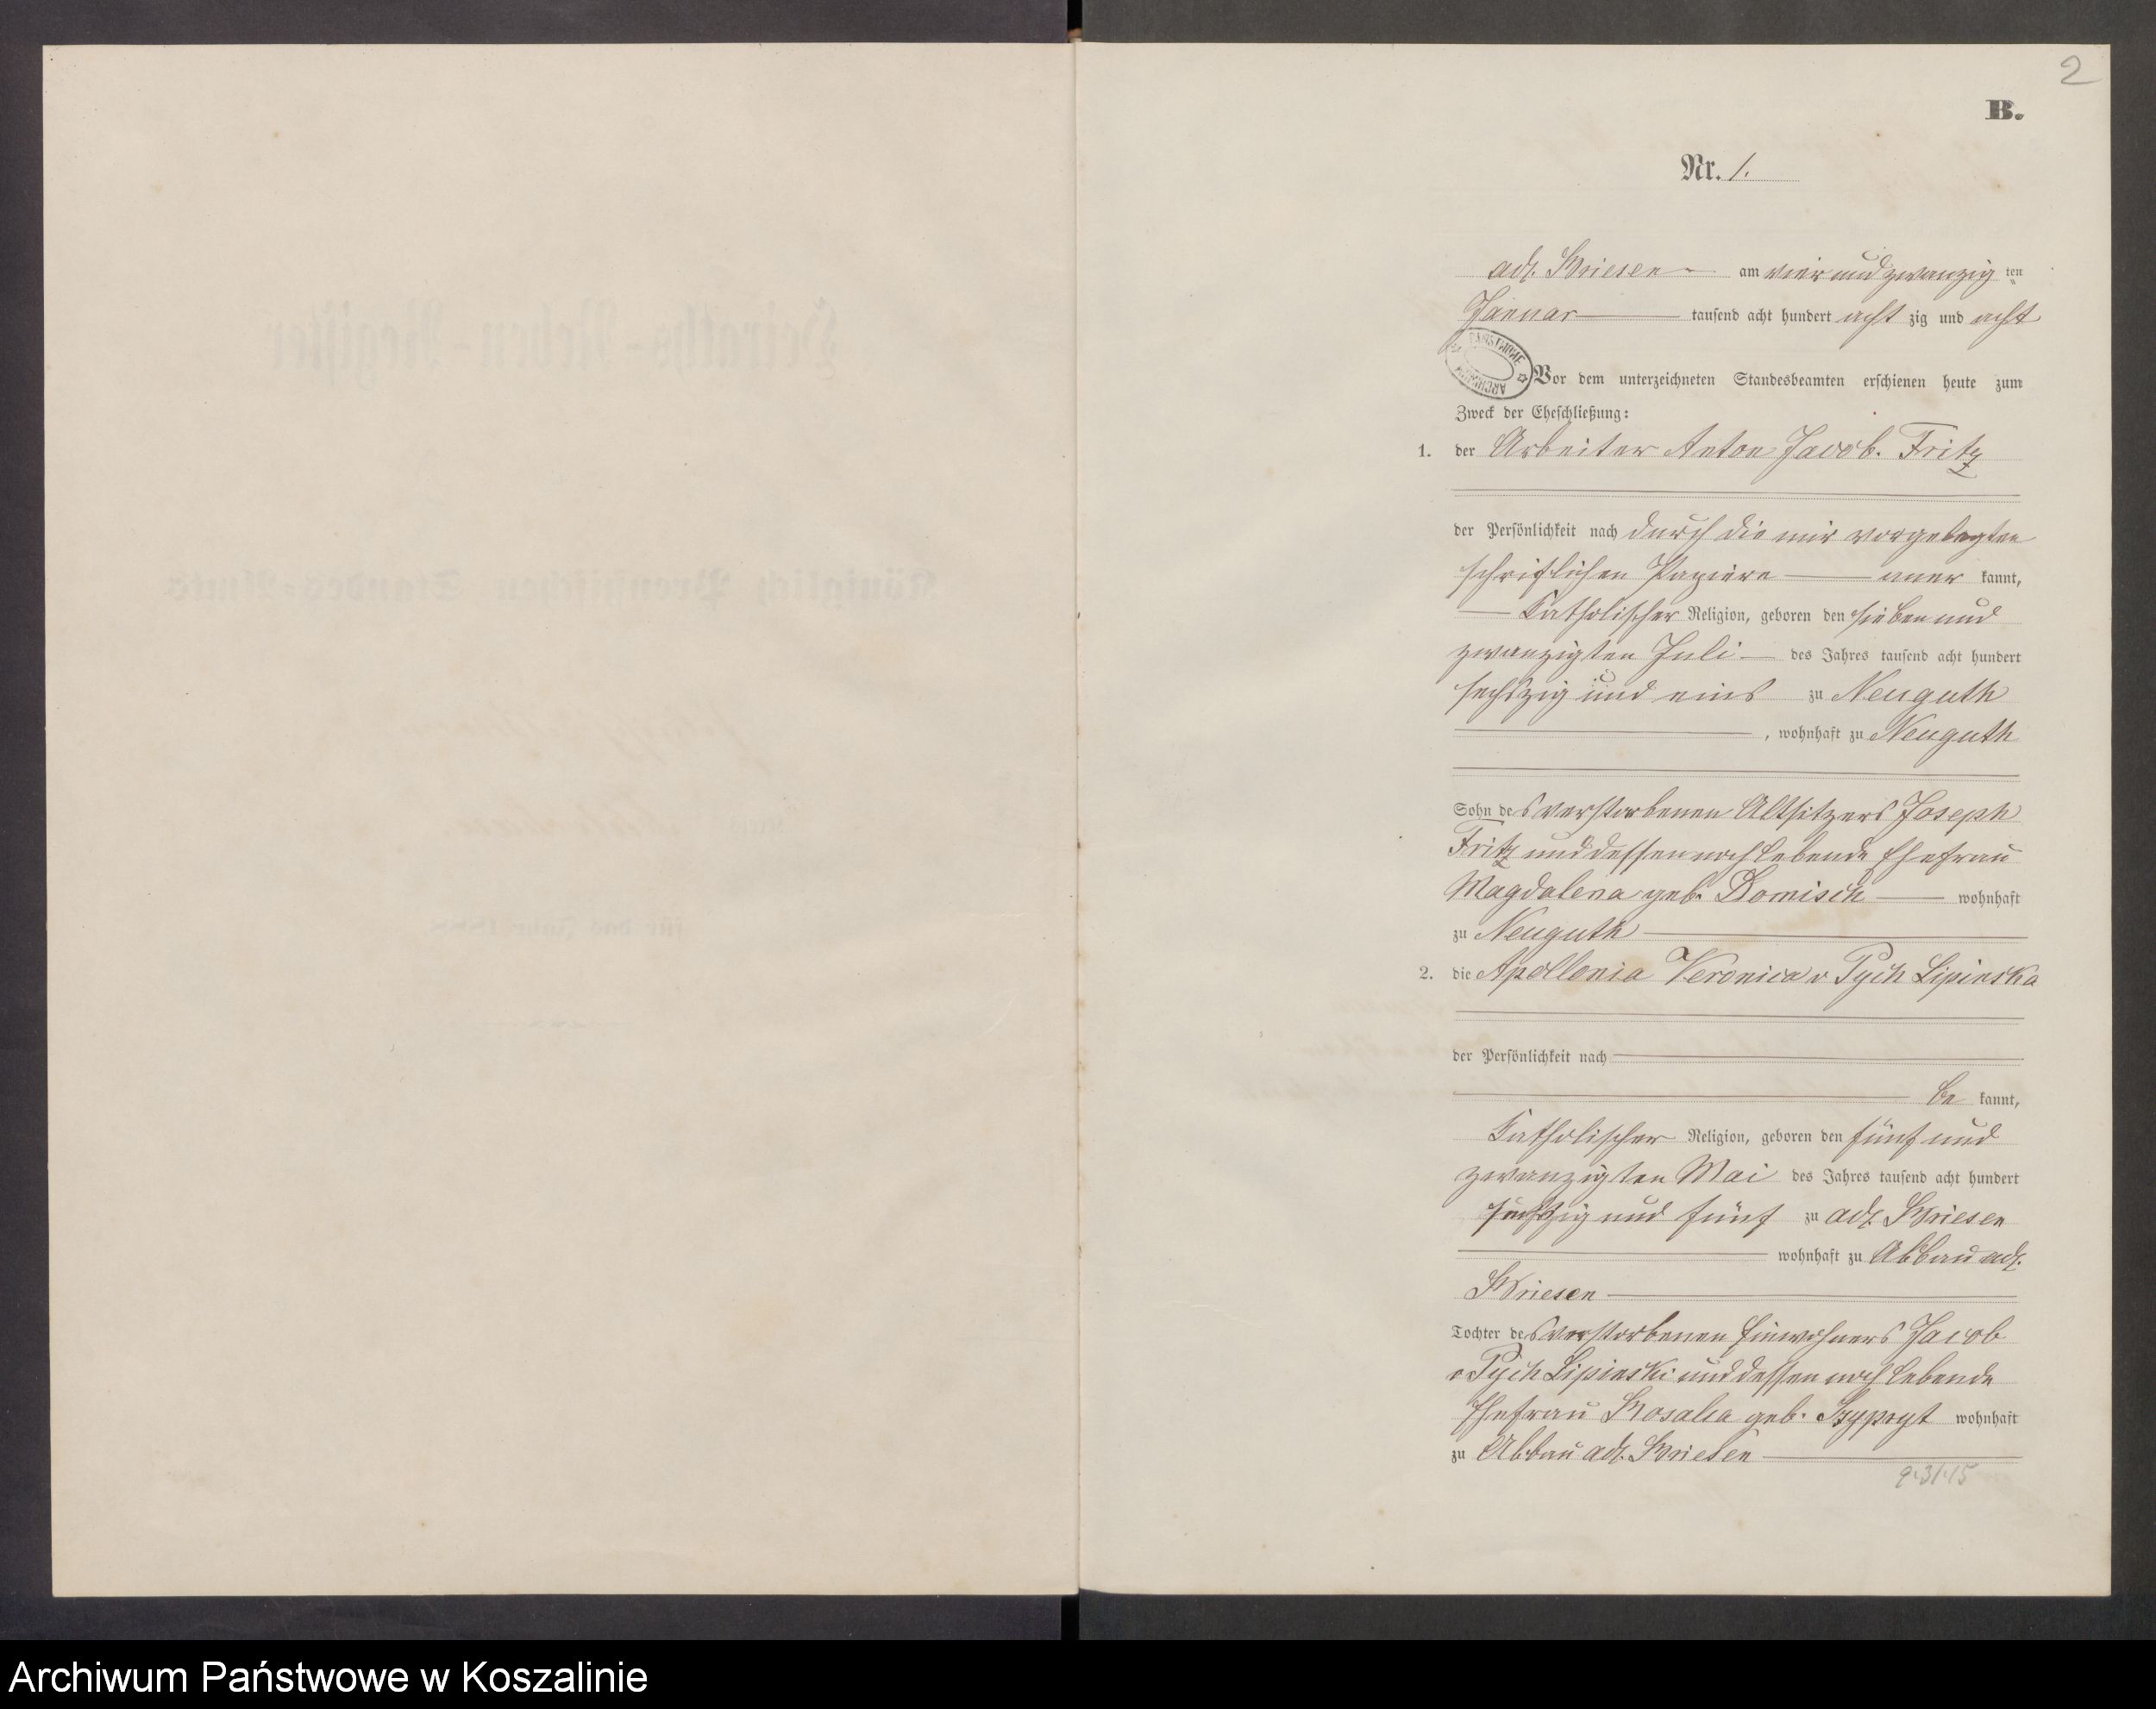 2
B.
Nr. 1.
adl. Briesen am vier und zwanzig ten
Januar tausend acht hundert acht zig und acht
Vor dem unterzeichneten Standesbeamten erschienen heute zum
Zweck der Eheschließung:
1. der Arbeiter Anton Jacob. Fritz
der Persönlichkeit nach durch die mir vorgelegten
schriftlichen Papiere aner kannt,
Katholischer Religion, geboren den sieben und
zwanzigten Juli des Jahres tausend acht hundert
sechszig und eins zu Neuguth
, wohnhaft zu Neuguth
Sohn des verstorbenen Altsitzers Joseph
Fritz und dessen noch lebende Ehefrau
Magdalena geb. Domisch wohnhaft
zu Neuguth
2. die Apollonia Veronica v Pych Lipinska
der Persönlichkeit nach
be kannt,
Katholischer Religion, geboren den fünf und
zwanzigten Mai des Jahres tausend acht hundert
zig und fünf zu adl. Briesen
wohnhaft zu Abbau adl.
Briesen
Tochter des verstorbenen Einwohners Jacob
v Pych Lipinski und dessen noch lebende
Ehefrau Rosalia geb. wohnhaft
zu Abbau adl. Briesen
Archiwum Państwowe w Koszalinie